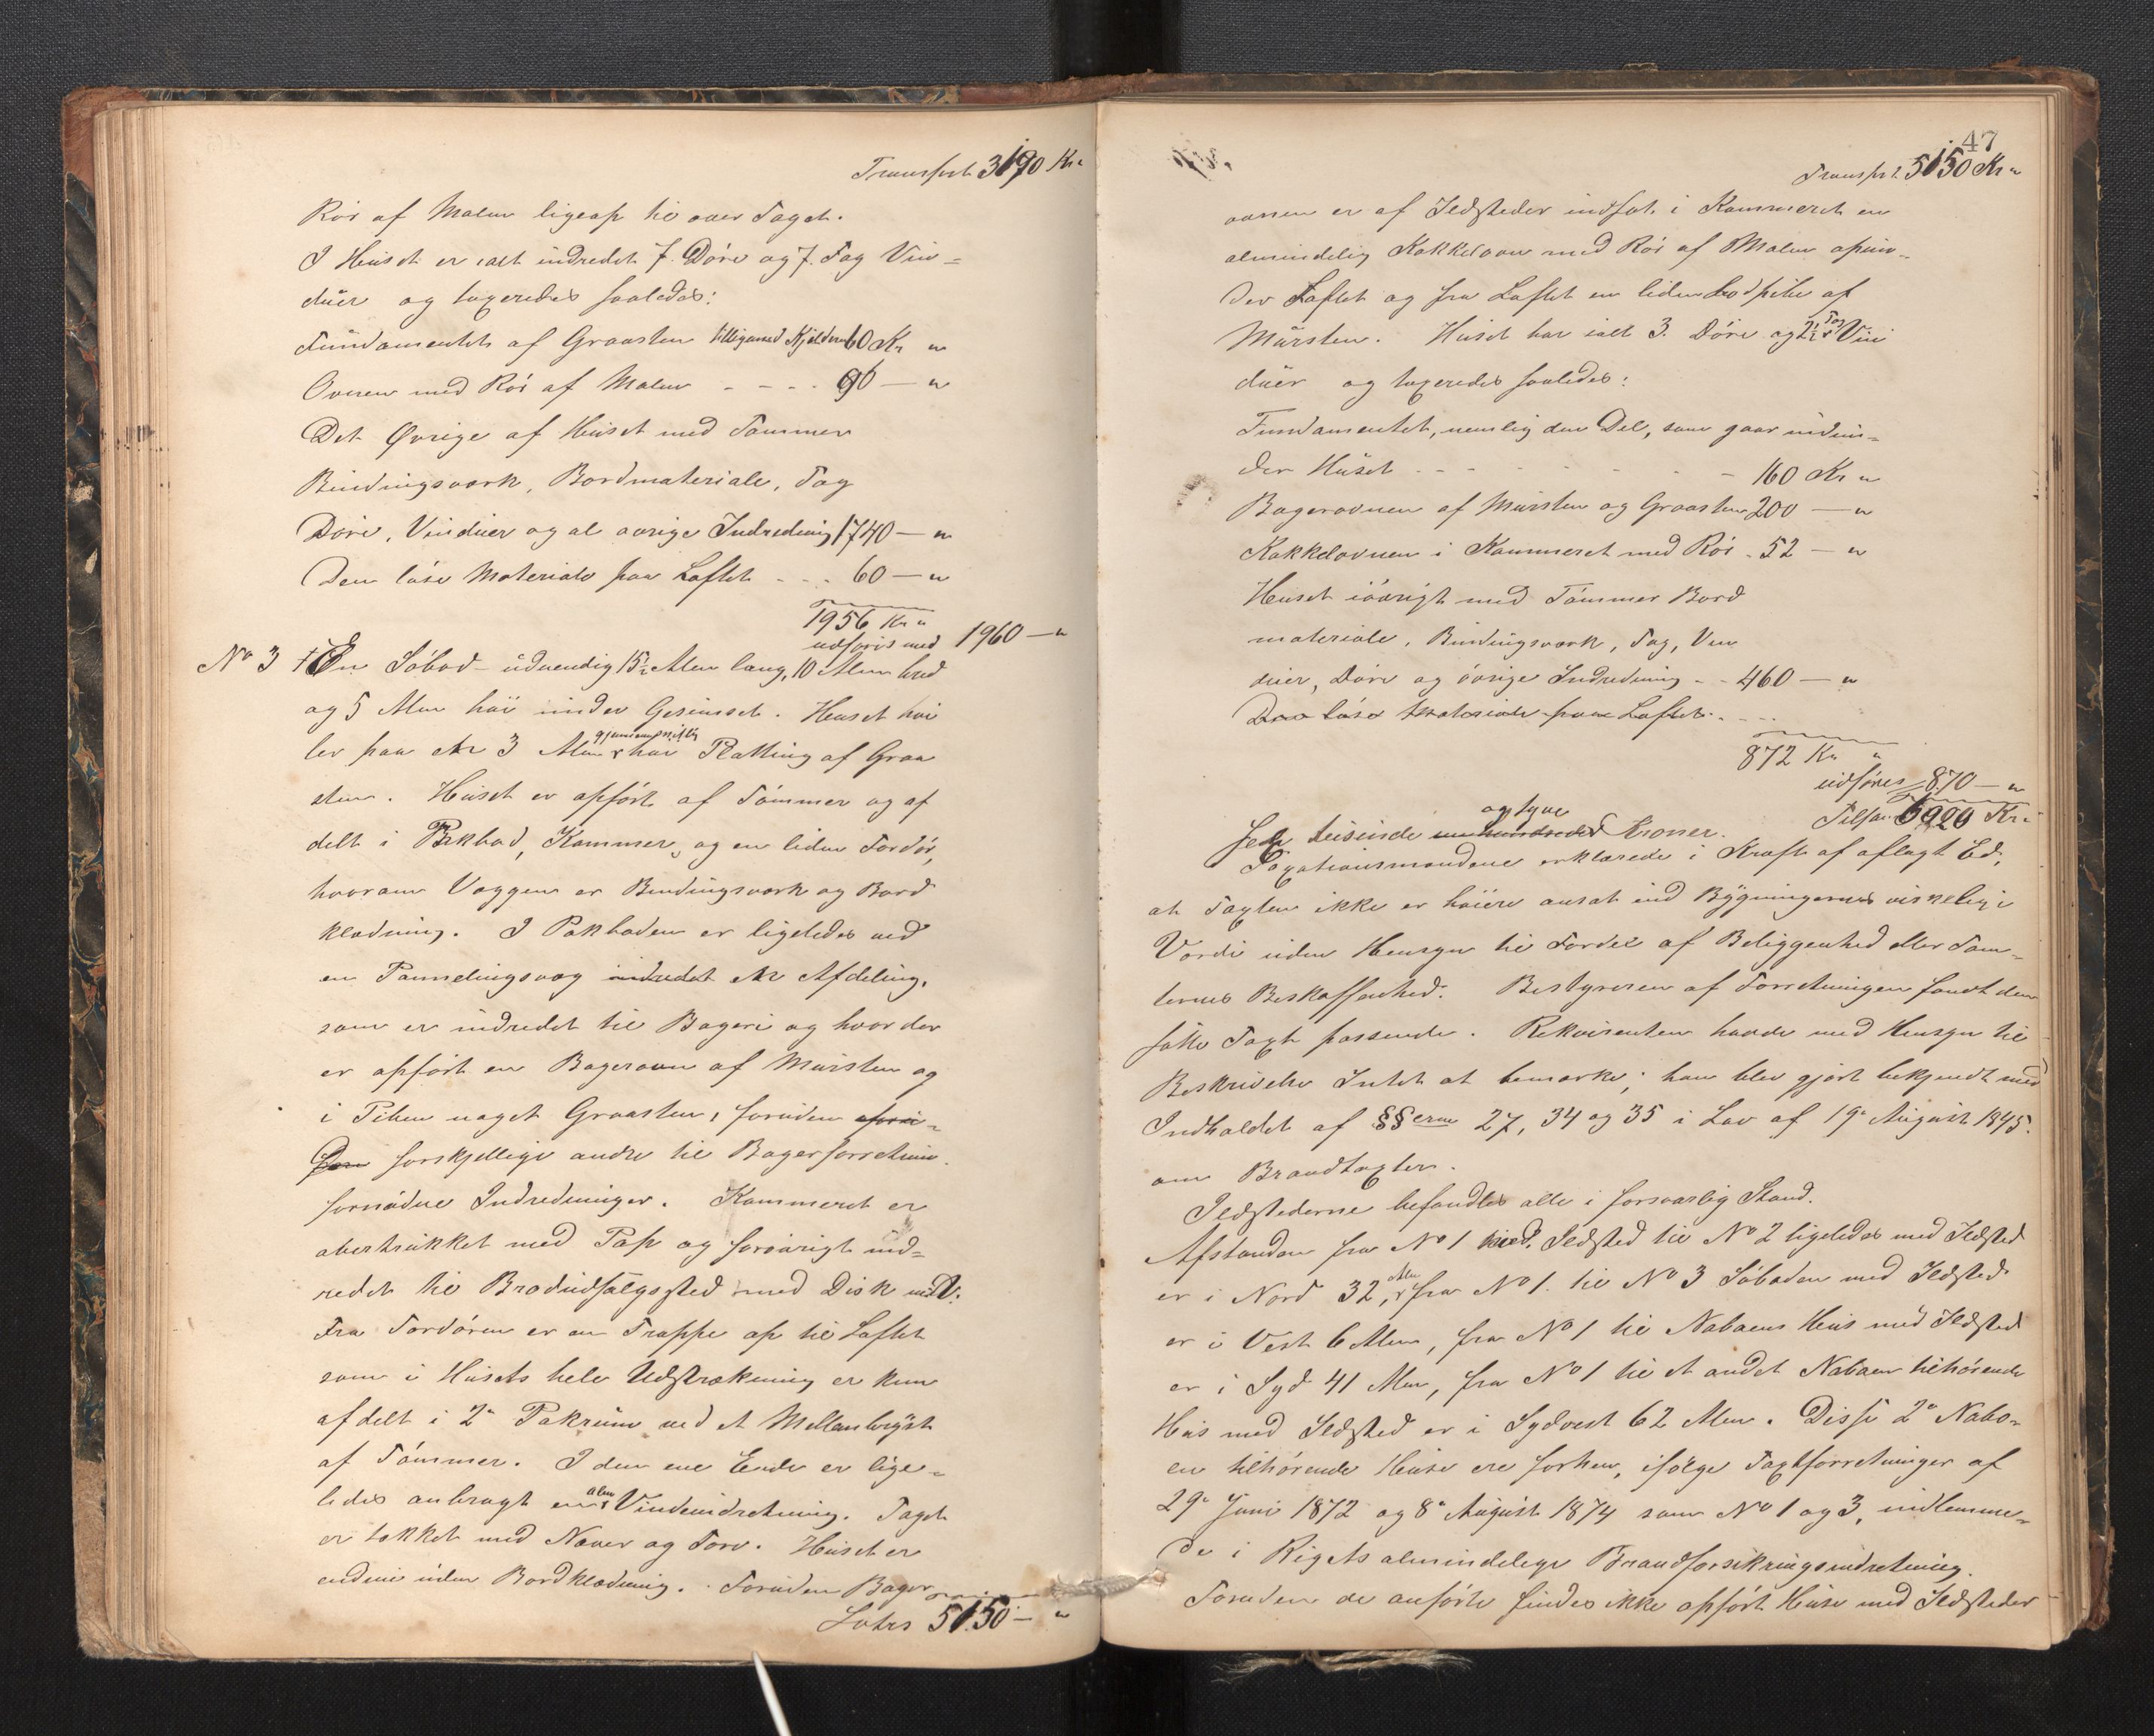 Transport 3190 Kr "
Rör af Malm ligeop til over Taget.
I Huset er ialt indredet 7. Döre og 7. Fag Vin-
duer og taxeredes saaledes:
Fundamentet af Graasten tilligemed Kjelderen 60 Kr "
Ovnen med Rör af Malm - - - . 96 — "
Det Øvrige af Huset med Tømmer
Bindingsværk, Bordmateriale, Tag
Döre, Vinduer og al øvrige Indredning 1740 — "
Den løse Materiale paa Loftet - - - 60 — "
1956 Kr "
udføris med 1960 — "
No 3 En Søbod udvendig 15½ Alen lang, 10 Alen bred
og 5 Alen höi under Gesimset. Huset hvi
ler paa en 3 Alen gjennemsnitlig høi Platting af Graa
sten. Huset er opfört af Tömmer og af
delt i Pakbod, Kammer, og en liden Fordör,
hvorom Væggen er Bindingsværk og Bord
klædning. I Pakboden er ligeledes ved
en Pannelingsvæg indredet en Afdeling,
som er indredet til Bageri og hvor der
er opfört en Bagerovn af Mursten og
i Piben noget Graasten, foruden
forskjellige andre til Bagerforretnin.
fornödne Indredninger. Kammeret er
overtrukket med Pap og forövrigt ind-
redet til Brødudsalgssted med Disk
Fra Fordören er en Trappe op til Loftet
som i Husets hele Udstrækning er kun
afdelt i 2 Pakrum ved et Mellembryst
af Tömmer. I den ene Ende er lige-
ledes anbragt en Alm Vindeindretning. Taget
er tækket med Næver og Torv. Huset er
endnu uden Bordklædning. Foruden Bager
Lateris 5150 — "
47
Transport 5150 Kr "
ovnen er af Ildsteder indsat i Kammeret en
almindelig Kakkelovn med Rör af Malm opun-
der Loftet og fra Loftet en liden Lodpibe af
Mursten. Huset har ialt 3. Döre og 2½ Fag Vin
duer og taxeredes saaledes:
Fundamentet, nemlig den Del, som gaar indun-
der Huset - - - - - - 160 Kr "
Bagerovnen af Mursten og Graasten 200 — "
Kakkelovnen i Kammeret med Rör . 52 — "
Huset iövrigt med Tömmer Bord
materiale, Bindingsværk, Tag, Vin
duer, Döre og övrige Indredning - - 460 — "
Den löse Materiale paa Loftet . - - -
872 Kr "
udføres 870 — "
Tilsam 6020 Kr "
Sex tusinde og tyve Kroner.
Taxationsmændene erklærede i Kraft af aflagt Ed,
at Taxten ikke er höiere ansat end Bygningernes virkelige
Værdi uden Hensyn til Fordel af Beliggenhed eller Tom-
ternes Beskaffenhed. Bestyreren af Forretningen fandt den
satte Taxt passende. Rekvirenten havde med Hensyn til
Beskrivelse Intet at bemærke; han blev gjort bekjendt med
Indholdet af §§erne 27, 34 og 35 i Lov af 19 August 1845.
om Brandtaxter.
Ildstederne befandtes alle i forsvarlig Stand.
Afstanden fra No 1 med Ildsted til No 2 ligeledes med Ildsted
er i Nord 32, Alen fra No 1. til No 3 Söboden med Ildsted
er i Vest 6 Alen, fra No 1 til Naboens Hus med Ildsted
er i Syd 41 Alen, fra No 1 til et andet Naboen tilhörende
Hus med Ildsted er i Sydvest 62 Alen. Disse 2 Nabo-
en tilhörende Huse ere forhen, ifölge Taxtforretninger af
29 Juni 1872 og 8 August 1874 som No 1 og 3, indlemme-
de i Rigets almindelige Brandforsikringsindretning.
Foruden de anførte findes ikke opfört Huse med Ildsteder